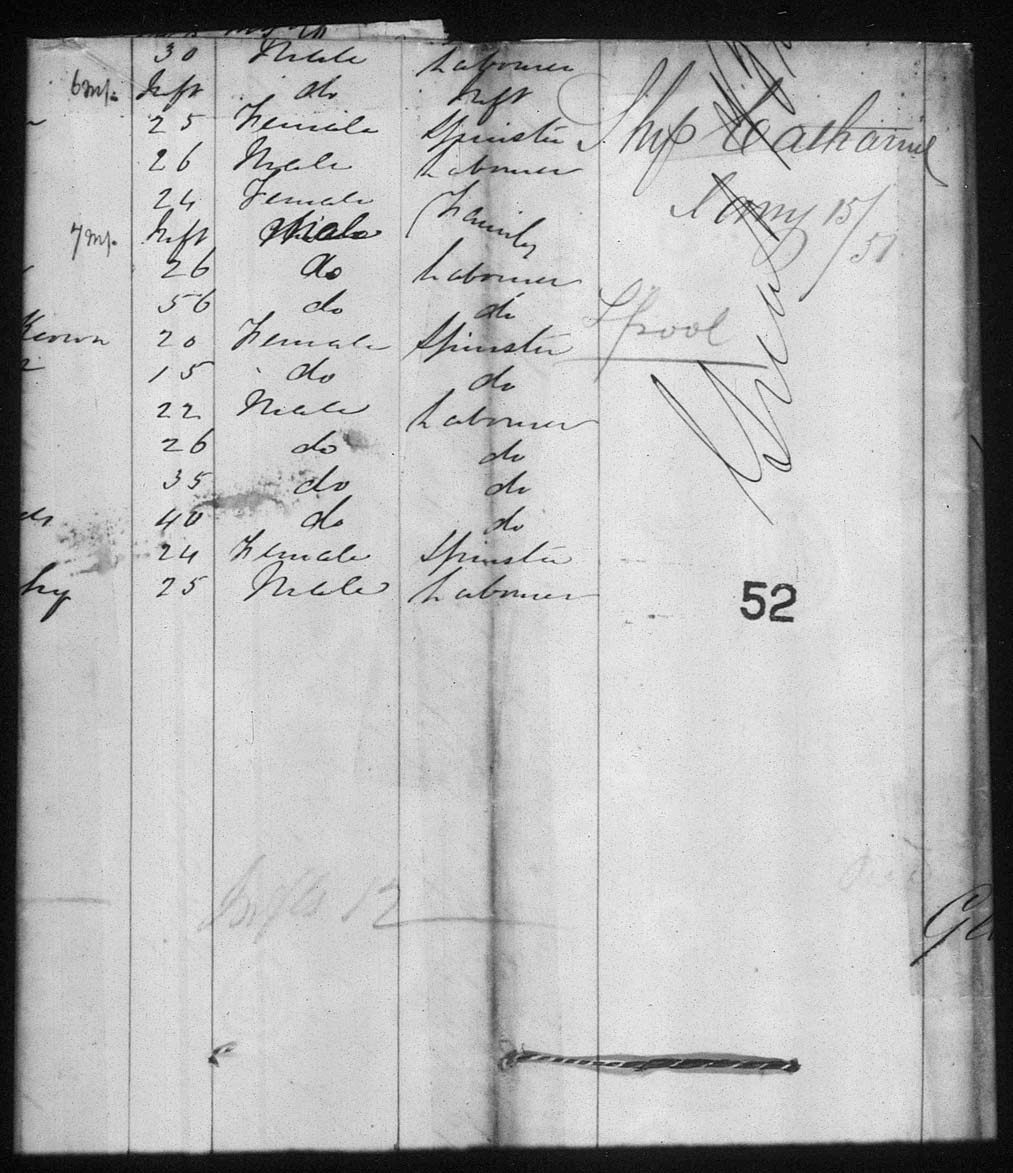 30 Male Labourer
6 ms. Inft do Inft
25 Female Spinster
26 Male Labourer
24 Female Family
7 ms. Inft Male
26 do Labourer
56 do do
Keown 20 Female Spinster
15 do do
22 Male Labourer
26 do do
35 do do
40 do do
24 Female Spinster
hy 25 Male Labourer
Ship Catharine
Jany 15/51
Lpool
52
Infts 12